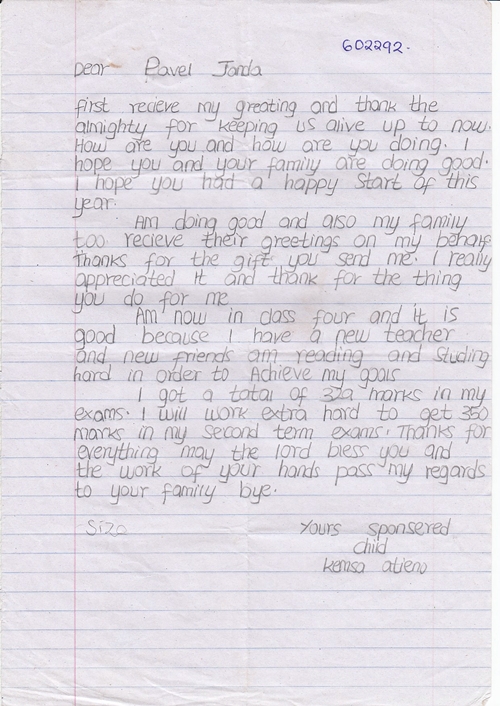 602292.
Dear Pavel Janda
first recieve my greating and thank the
almighty for keeping us alive up to now.
How are you and how are you doing. I
hope you and your family are doing good.
I hope you had a happy start of this
year.
Am doing good and also my family
too recieve their greetings on my behalf
Thanks for the gift you send me. I really
appreciated it and thank for the thing
you do for me
Am now in class four and it is
good because I have a new teacher
and new friends am reading and studing
hard in order to Achieve my goals
I got a total of 322 marks in my
exams. I will work extra hard to get 350
marks in my second term exams. Thanks for
everything may the lord bless you and
the work of your hands pass my regards
to your family bye.
Yours sponsered
child
kemsa atieno